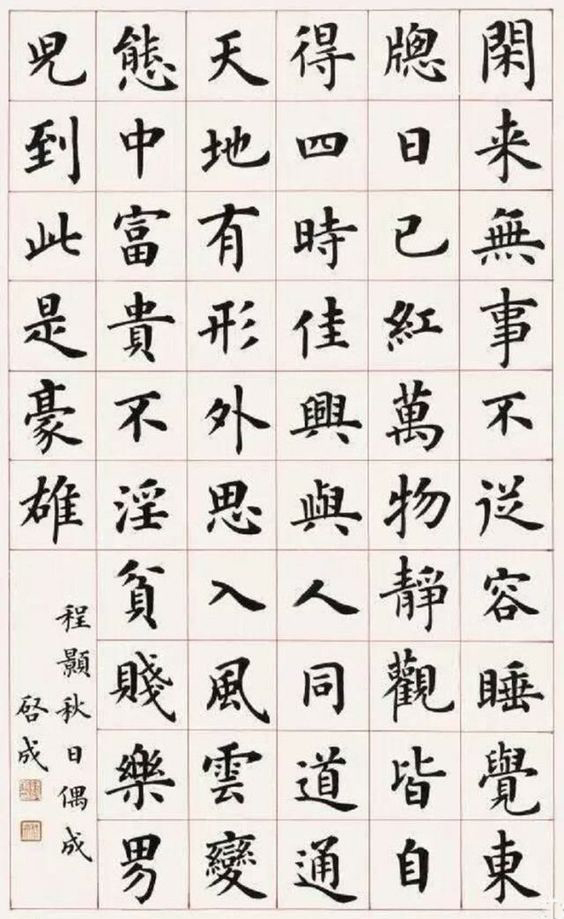 閑来無事不從容睡覺東
牕日已紅萬物靜觀皆自
得四時佳興與人同道通
天地有形外思入風雲變
態中富貴不淫貧賤樂男
兒到此是豪雄
程顥秋日偶成
啓成